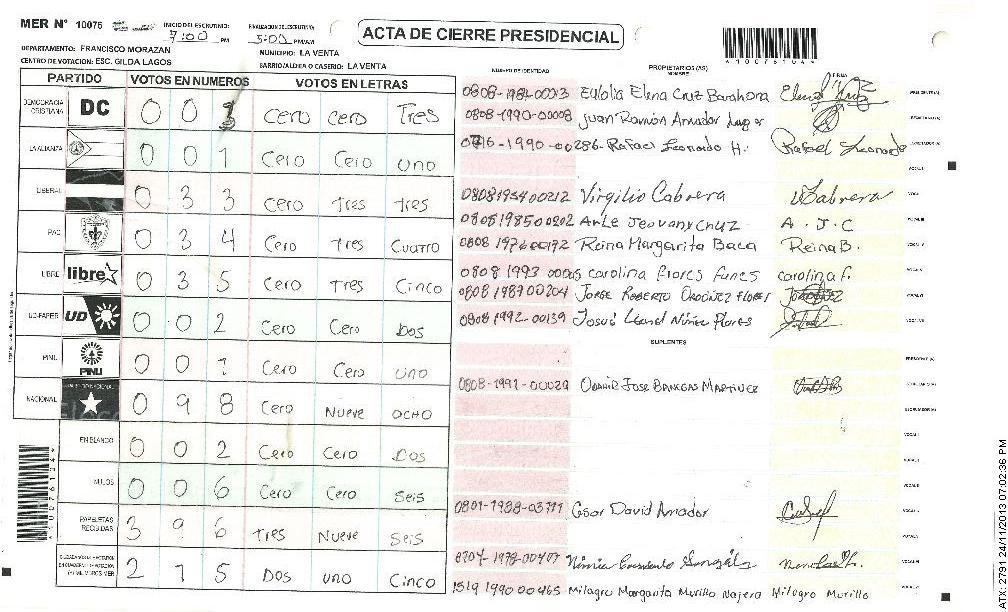 MER N° 10076
INICIO DEL ESCRUTINIO: 7:00 PM
FINALIZACION DEL ESCRUTINIO: 5:00 PM/AM
ACTA DE CIERRE PRESIDENCIAL
DEPARTAMENTO: FRANCISCO MORAZAN
MUNICIPIO: LA VENTA
CENTRO DE VOTACION: ESC. GILDA LAGOS
BARRIO/ALDEA O CASERIO: LA VENTA
PARTIDO VOTOS EN NUMEROS VOTOS EN LETRAS
DEMOCRACIA CRISTIANA DC 0 0 3 Cero Cero Tres
LA ALIANZA 0 0 1 Cero Cero Uno
LIBERAL 0 3 3 Cero Tres Tres
PAC 0 3 4 Cero Tres Cuatro
LIBRE libre 0 3 5 Cero Tres Cinco
UD-FAPER UD 0 0 2 Cero Cero Dos
PINU PINU 0 0 1 Cero Cero Uno
NACIONAL 0 9 8 Cero Nueve Ocho
EN BLANCO 0 0 2 Cero Cero Dos
NULOS 0 0 6 Cero Cero Seis
PAPELETAS RECIBIDAS 3 9 6 Tres Nueve Seis
2 1 5 Dos Uno Cinco
NUMERO DE IDENTIDAD PROPIETARIOS (AS) NOMBRE FIRMA
Eulolia Elena Cruz Barahona
0808-1990-00008 Juan Ramón Amador
0716-1990-00286 Rafael Leonardo H. Rafael Leonardo
0808195400212 Virgilio Cabrera VCabrera
0808198500202 Jeovany Cruz A.J.C
0808 1976 00172 Reina Margarita Baca Reina B.
0808 1993 Carolina Flores Funes Carolina F.
0808 1987 00204 Jorge Roberto Ordoñez Flores
0808 1992-00139 Josué Leonel Núñez Flores
SUPLENTES
0808-1991-00029 Odahir Jose Banegas Martinez
0801-1988-03711 Cesar David Amador
0704-1978-00407
1519 1990 00465 Milagro Margarita Murillo Najera Milagro Murillo
ATX: 2791 24/11/2013 07:02:36 PM